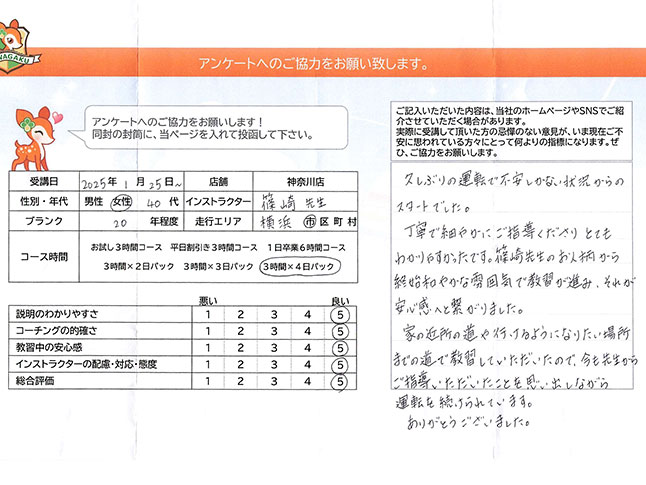 NAGAKU
アンケートへのご協力をお願い致します。
アンケートへのご協力をお願いします！
同封の封筒に、当ページを入れて投函して下さい。
ご記入いただいた内容は、当社のホームページやSNSでご紹介させていただく場合があります。
実際に受講して頂いた方の忌憚のない意見が、いま現在ご不安に思われている方々にとって何よりの指標になります。ぜひ、ご協力をお願いします。
受講日 2025年 1月 25日～ 店舗 神奈川店
性別・年代 男性 女性 40代 インストラクター 篠崎 先生
ブランク 20 年程度 走行エリア 横浜 市区町村
コース時間 お試し3時間コース 平日割引き3時間コース 1日卒業6時間コース
3時間×2日パック 3時間×3日パック 3時間×4日パック
悪い 良い
説明のわかりやすさ 1 2 3 4 5
コーチングの的確さ 1 2 3 4 5
教習中の安心感 1 2 3 4 5
インストラクターの配慮・対応・態度 1 2 3 4 5
総合評価 1 2 3 4 5
久しぶりの運転で不安しかない状況からの
スタートでした。
丁寧で細やかにご指導くださり とても
わかりやすかったです。篠崎先生のお人柄から
終始和やかな雰囲気で教習が進み、それが
安心感へと繋がりました。
家の近所の道や行けるようになりたい場所
までの道で教習していただいたので、今も先生から
ご指導いただいたことを思い出しながら
運転を続けられています。
ありがとうございました。